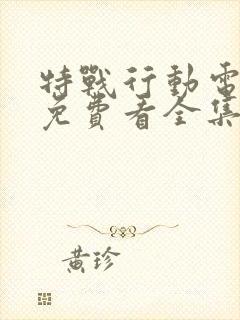 特戰行動電
免費看全集
黃珍